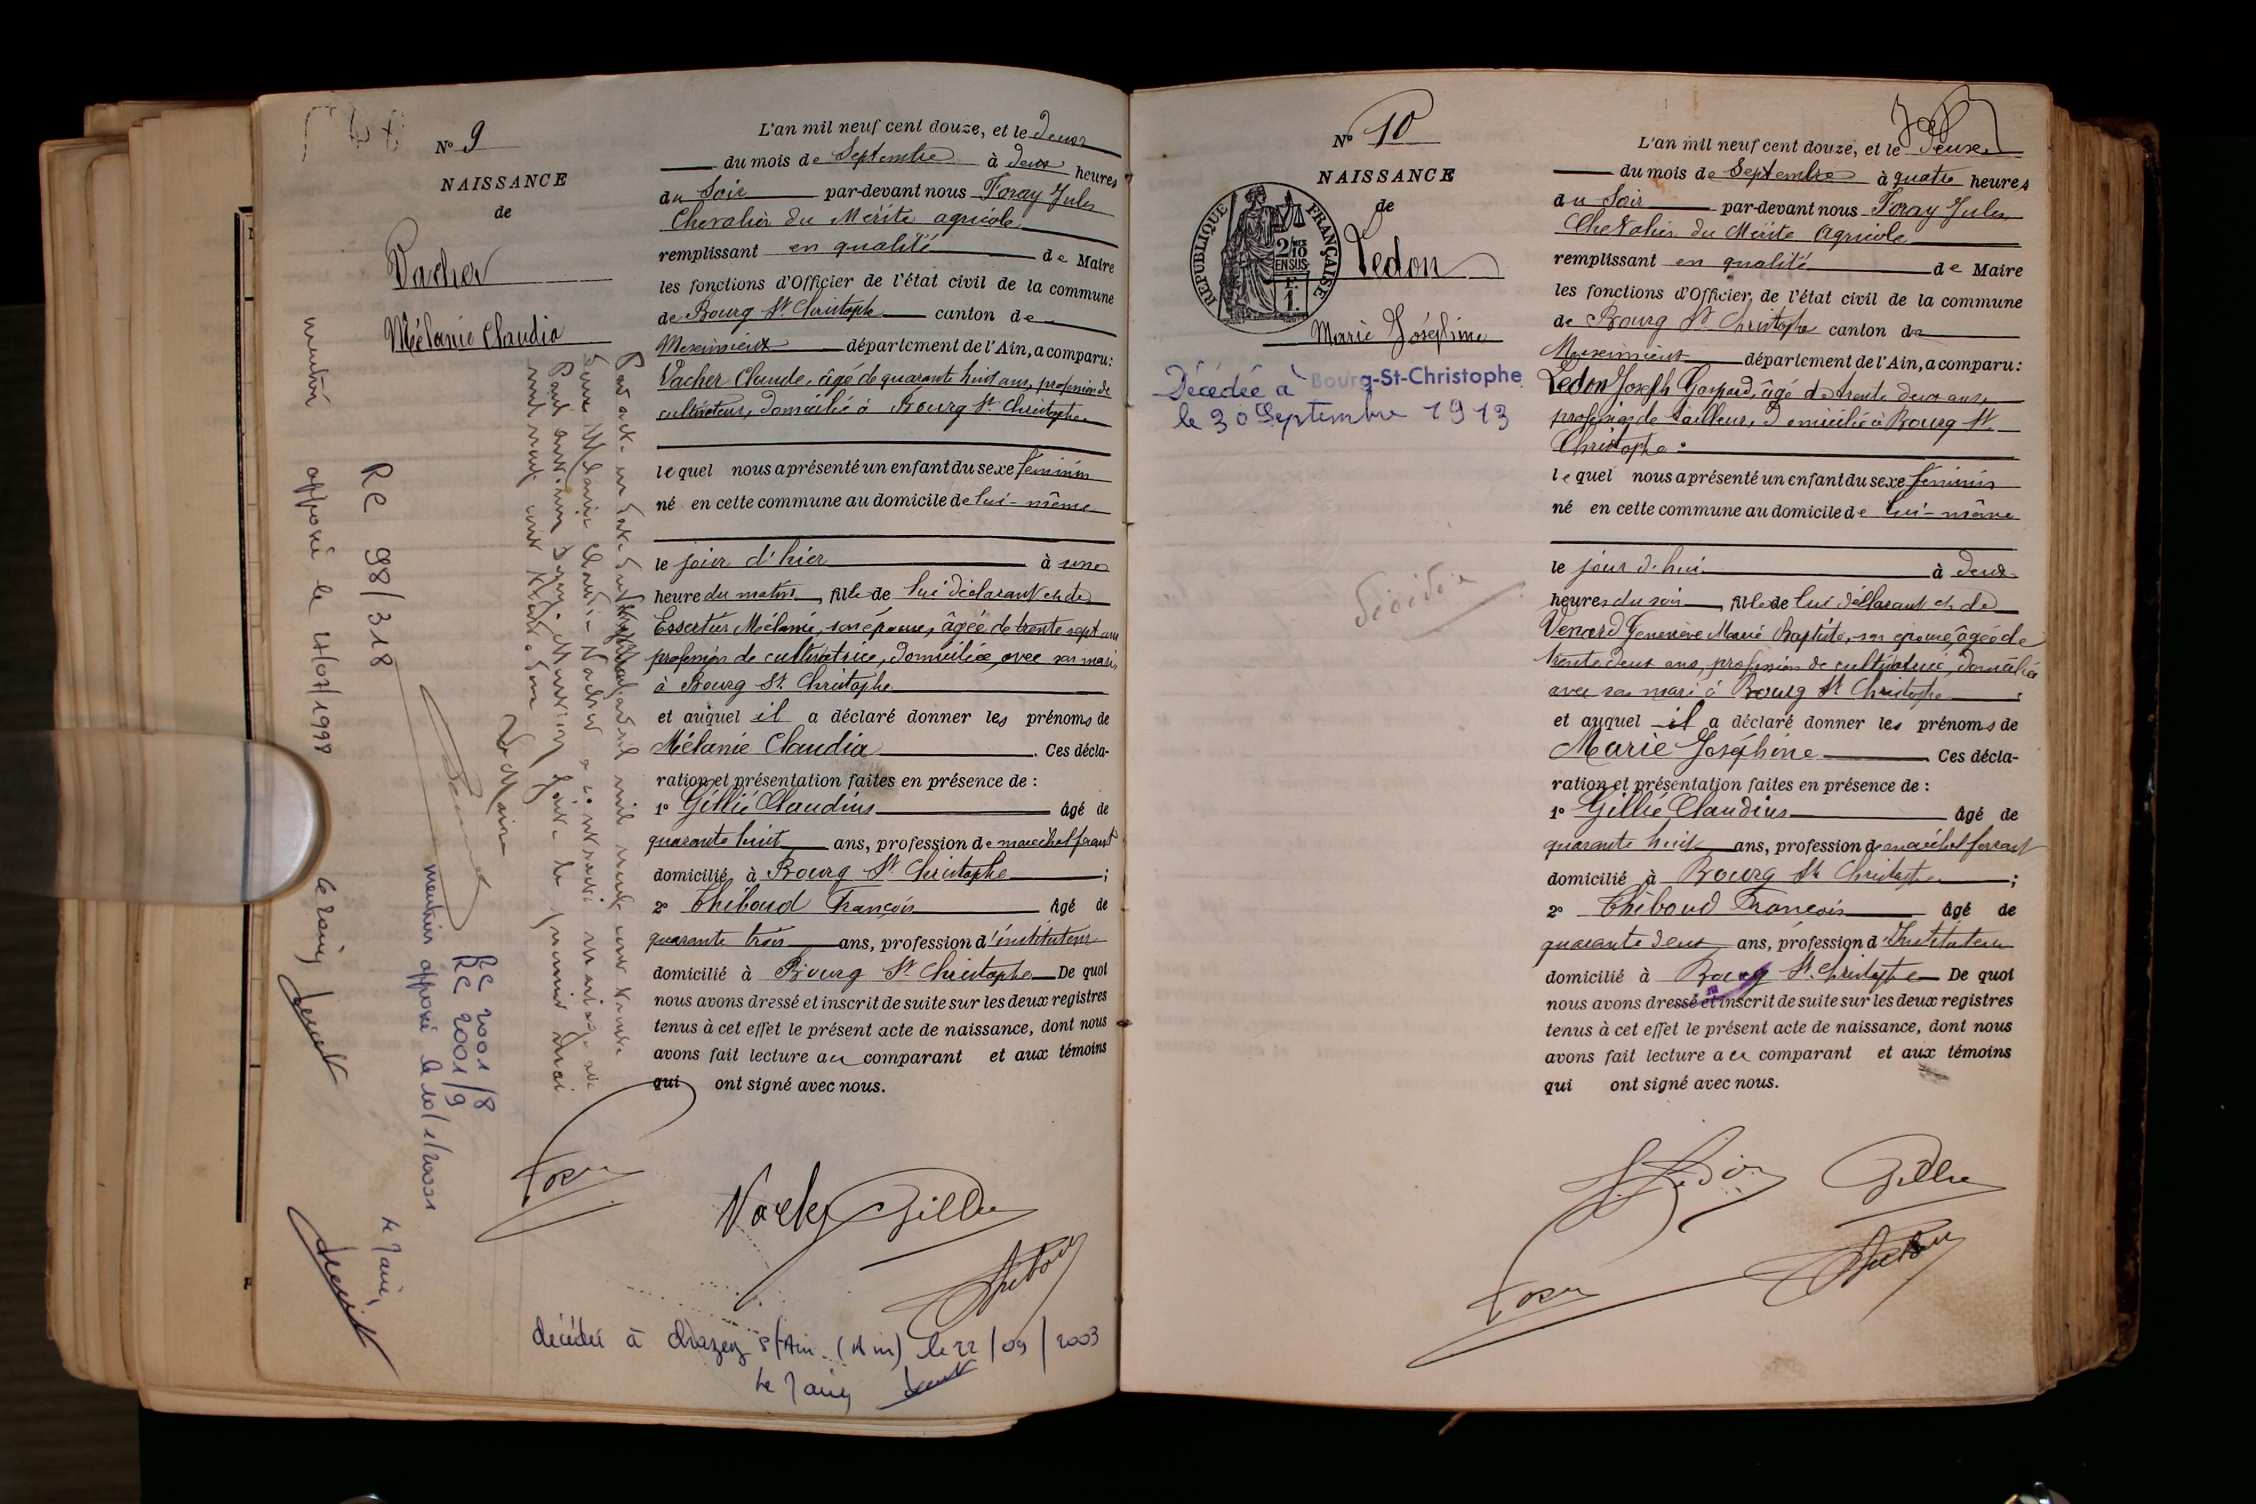 N° 9
NAISSANCE
de
Vacher
Mélanie Claudia
L'an mil neuf cent douze, et le deux
du mois de Septembre à deux heures
du Soir par-devant nous Foray Jules
Chevalier du Mérite agricole
remplissant en qualité de Maire
les fonctions d'Officier de l'état civil de la commune
de Bourg St Christophe canton de
Meximieux département de l'Ain, a comparu:
Vacher Claude, âgé de quarante huit ans, profession de
cultivateur, domicilié à Bourg St Christophe
lequel nous a présenté un enfant du sexe féminin
né en cette commune au domicile de lui-même
le jour d'hier à une
heure du matin, fille de lui déclarant et de
Essertier Mélanie, son épouse, âgée de trente sept ans
profession de cultivatrice, domiciliée avec son mari
à Bourg St Christophe
et auquel il a déclaré donner les prénoms de
Mélanie Claudia. Ces décla-
ration et présentation faites en présence de :
1° Gillié Claudius âgé de
quarante huit ans, profession de maréchal ferrant
domicilié à Bourg St Christophe ;
2° Thiboud François âgé de
quarante trois ans, profession d'instituteur
domicilié à Bourg St Christophe De quoi
nous avons dressé et inscrit de suite sur les deux registres
tenus à cet effet le présent acte de naissance, dont nous
avons fait lecture au comparant et aux témoins
qui ont signé avec nous.
Foray
Vacher Gillié
Thiboud
décédée à Chazey s/Ain (Ain) le 22/09/2003
Le Maire
Le Maire
RC 98/318
mention apposée le 17/07/1998 Le Maire
RC 2001/8
RC 2001/9
mention apposée le 10/1/2001
Le Maire
N° 10
NAISSANCE
de
RÉPUBLIQUE FRANÇAISE
2/10 EN SUS
1F
Ledon
Marie Joséphine
Décédée à Bourg-St-Christophe
le 30 Septembre 1913
décédée
L'an mil neuf cent douze, et le deux
du mois de Septembre à quatre heures
du Soir par-devant nous Foray Jules
Chevalier du Mérite Agricole
remplissant en qualité de Maire
les fonctions d'Officier de l'état civil de la commune
de Bourg St Christophe canton de
Meximieux département de l'Ain, a comparu:
Ledon Joseph Gaspard, âgé de trente deux ans,
profession de tailleur, domicilié à Bourg St
Christophe
lequel nous a présenté un enfant du sexe féminin
né en cette commune au domicile de lui-même
le jour d'hui à deux
heures du soir, fille de lui déclarant et de
Venard Geneviève Marie Baptiste, son épouse, âgée de
trente deux ans, profession de cultivatrice, domiciliée
avec son mari à Bourg St Christophe
et auquel il a déclaré donner les prénoms de
Marie Joséphine. Ces décla-
ration et présentation faites en présence de :
1° Gillié Claudius âgé de
quarante huit ans, profession de maréchal ferrant
domicilié à Bourg St Christophe ;
2° Thiboud François âgé de
quarante deux ans, profession d'Instituteur
domicilié à Bourg St Christophe De quoi
nous avons dressé et inscrit de suite sur les deux registres
tenus à cet effet le présent acte de naissance, dont nous
avons fait lecture au comparant et aux témoins
qui ont signé avec nous.
Ledon Gillié
Foray Thiboud